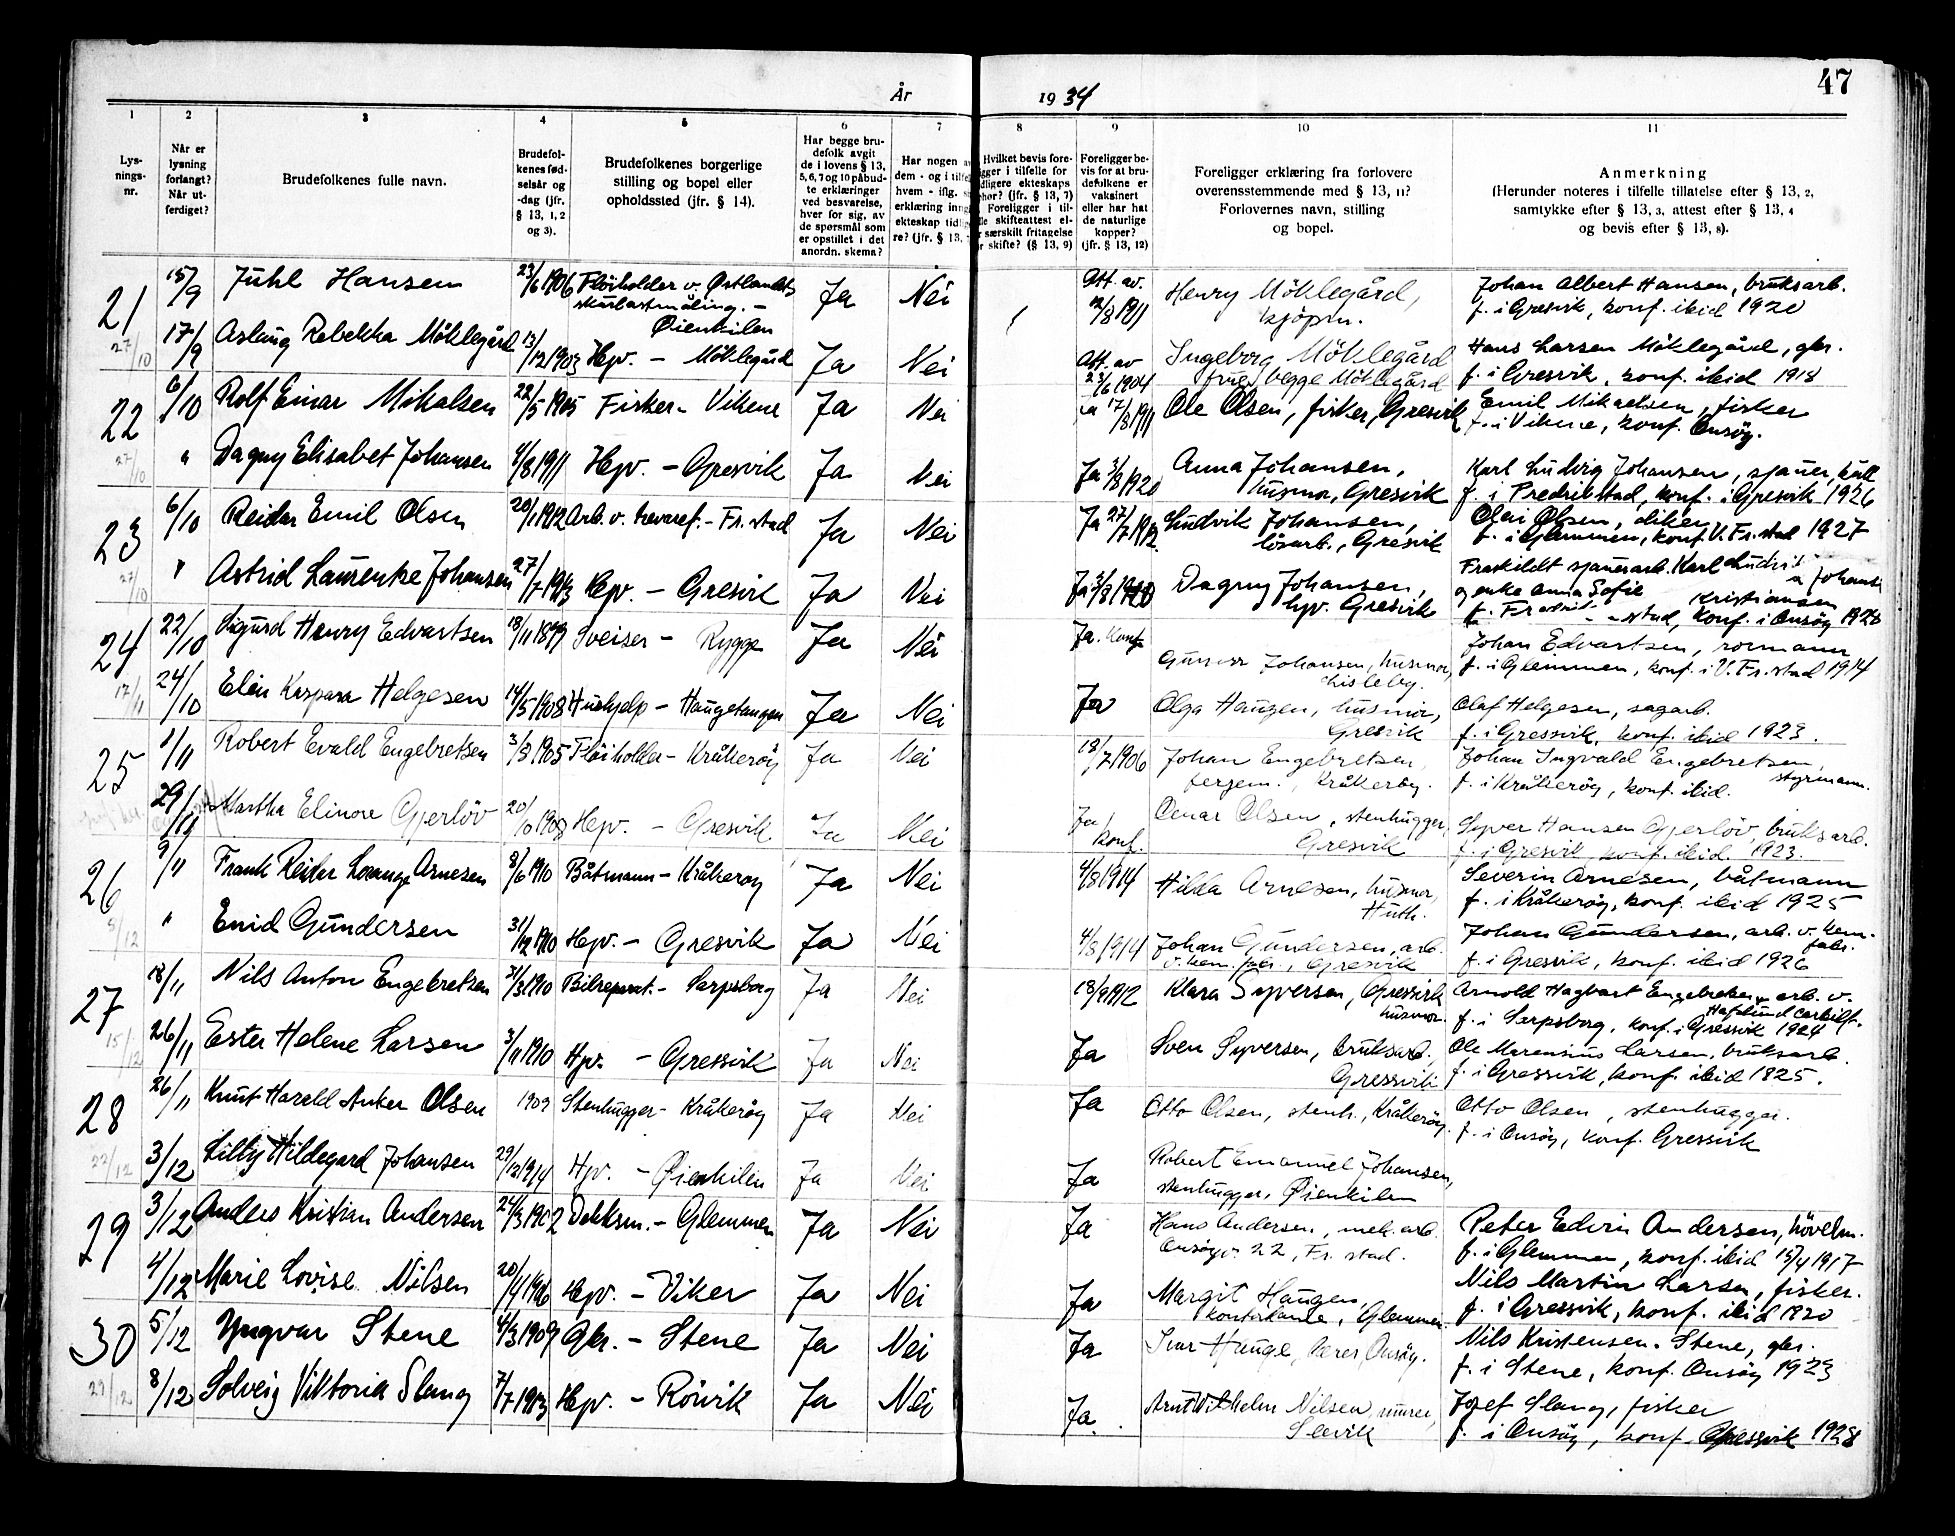 47
År 1934
1 2 3 4 5 6 7 8 9 10 11
Lys-
nings-
nr.
Når er
lysning
forlangt?
Når ut-
ferdiget?
Brudefolkenes fulle navn.
Brudefol-
kenes fød-
selsår og
-dag (jfr.
§ 13, 1, 2
og 3).
Brudefolkenes borgerlige
stilling og bopel eller
opholdssted (jfr. § 14).
Har begge bru-
defolk avgit
de i lovens § 13,
5, 6, 7 og 10 påbud-
te erklæringer
ved besvarelse,
hver for sig, av
de spørsmål som
er opstillet i det
anordn. skema?
Har nogen av
dem - og i tilfel
hvem - iflg.
erklæring inng
ekteskap tidlig
re? (jfr. § 13,
Hvilket bevis fore-
gger i tilfelle for
dligere ekteskaps
hør? (jfr. § 13, 7)
Foreligger i til-
lle skifteattest el-
r særskilt fritagelse
r skifte? (§ 13, 9)
Foreligger be-
vis for at bru-
defolkene er
vaksinert
eller har hat
de naturlige
kopper?
(jfr. § 13, 12)
Foreligger erklæring fra forlovere
overensstemmende med § 13, 11?
Forlovernes navn, stilling
og bopel.
Anmerkning
(Herunder noteres i tilfelle tillatelse efter § 13, 2,
samtykke efter § 13, 3, attest efter § 13, 4
og bevis efter § 13, 8).
21 15/9 Juhl Hansen 23/6 1906 Fløiholder v. Østlandets
skurlastmåling. -
Øienkilen Ja Nei Att. av 12/8 1911 Henry Möklegård,
kjöpm. Johan Albert Hansen, bruksarb.
f. i Gresvik, konf. ibid 1920
27/10 17/9 Aslaug Rebekka Möklegård 13/12 1903 Hpv. - Möklegård Ja Nei Att. av 23/6 1904 Ingeborg Möklegård
frue, begge Möklegård Hans Larsen Möklegård, gbr.
f. i Gressvik, konf. ibid 1918
22 6/10 Rolf Einar Mikalsen 22/5 1905 Fisker - Vikene Ja Nei Ja 17/8 1911 Ole Olsen, fisker, Gresvik Emil Mikaelsen, fisker
f. i Vikene, konf. Onsöy.
27/10 " Dagny Elisabet Johansen 4/8 1911 Hpv. - Gresvik Ja Nei Ja 3/8 1920 Anna Johansen,
husmor, Gresvik Karl Ludvig Johansen, sjauer,
f. i Fredrikstad, konf. i Gresvik 1926
23 6/10 Reidar Emil Olsen 20/1 1912 Arb. v. trevaref. - Fr.stad Ja Nei Ja 27/7 1912 Ludvik Johansen,
lösarb., Gresvik Olsen,
f. i Glemmen, konf. V. Fr.stad 1927
27/10 " Astrid Laurentze Johansen 27/7 1913 Hpv. - Gresvik Ja Nei Ja 3/8 1920 Dagny Johansen,
hpv. Gresvik Fraskildt sjauerarb. Karl Ludvig Johansen
og enke Anna Sofie Kristiansen
f. Fredrik- - stad, konf. i Onsöy 1928
24 22/10 Sigurd Henry Edvartsen 18/11 1899 Sveiser - Rygge Ja Nei Ja. Konf Johansen, husmor,
Lisleby. Johan Edvartsen, rormann
f. i Glemmen, konf. i V. Fr.stad 1914
17/11 24/10 Elin Kaspara Helgesen 14/5 1908 Hushjelp - Haugetangen Ja Nei Ja Olga Haugen, husmor,
Gresvik Olaf Helgesen, sagarb.
f. i Gressvik, konf. ibid 1923.
25 1/11 Robert Evald Engebretsen 3/3 1905 Fløiholder - Kråkeröy Ja Nei 18/7 1906 Johan Engebretsen,
fergem., Kråkeröy. Johan Ingvald Engebretsen,
styrmann.
f. i Kråkeröy, konf. ibid.
29/11 Martha Elinore Gjerlöv 20/10 1908 Hpv. - Gresvik Ja Nei Ja, konf. Olsen, stenhugger,
Gresvik Syver Hansen Gjerlöv, bruksarb.
f. i Gresvik, konf. ibid. 1923.
26 9/11 Frank Reidar Lorange Arnesen 8/6 1910 Båtmann - Kråkeröy Ja Nei 4/8 1914 Hilda Arnesen, husmor,
Huth. Severin Arnesen, båtmann
f. i Kråkeröy, konf. ibid 1925
5/12 " Enid Gundersen 31/12 1910 Hpv. - Gresvik Ja Nei 4/8 1914 Johan Gundersen, arb.
v. kem. fabr., Gresvik Johan Gundersen, arb. v. kem.
fabr.
f. i Gressvik, konf. ibid 1926
27 18/11 Nils Anton Engebretsen 31/3 1910 Bilreparat. - Sarpsborg Ja Nei 18/9 1912 Klara Syversen, Gressvik
husmor. Arnold Hagbart Engebretsen, arb. v.
Hafslund
f. i Sarpsborg, konf. i Gressvik 1924
15/12 26/11 Ester Helene Larsen 3/11 1910 Hpv. - Gressvik Ja Nei Ja Sven Syversen, bruksarb.
Gressvik Ole Marensius Larsen, bruksarb.
f. i Gressvik, konf. ibid 1825.
28 26/11 Knut Harald Anker Olsen 1909 Stenhugger - Kråkeröy Ja Nei Ja Otto Olsen, stenh., Kråkeröy. Otto Olsen, stenhugger.
f. i Onsöy, konf. Gressvik
22/12 3/12 Lilly Hildegard Johansen 29/12 1914 Hpv. - Øienkilen Ja Nei Ja Robert Emanuel Johansen,
stenhugger, Øienkilen
29 3/12 Anders Kristian Andersen 24/3 1902 Dekksm. - Glemmen Ja Nei Ja Hans Andersen, mek. arb.
Onsöyv. 22, Fr.stad. Peter Edvin Andersen, hövelm.
f. i Glemmen, konf. ibid 15/4 1917
4/12 Marie Lovise Nilsen 20/4 1906 Hpv. - Viker Ja Nei Ja Margit Haugen,
kontordame, Glemmen Nils Martin Larsen, fisker.
f. i Gressvik, konf. ibid 1820
30 5/12 Yngvar Stene 4/3 1909 Gbr. - Stene Ja Nei Ja Ivar Hauge, lærer Onsöy. Nils Kristensen Stene, gbr.
f. i Stene, konf. Onsöy 1923
29/12 8/12 Solveig Viktoria Slang 7/7 1913 Hpv. - Röivik Ja Nei Ja. Arnt Vilhelm Nilsen, murer,
Slevik Josef Slang, fisker
f. i Onsöy, konf. Gressvik 1928